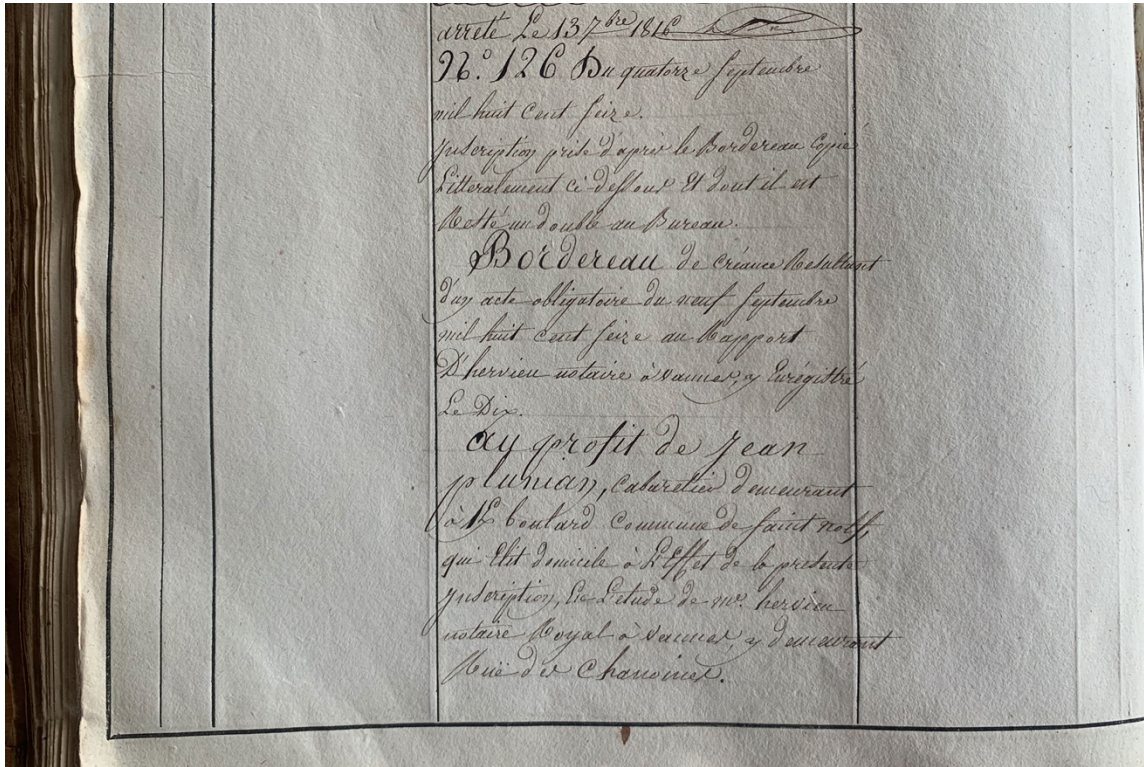 arrêté Le 13 7bre 1816
N.° 126 Du quatorze Septembre
mil huit Cent Seize.
Inscription prise d'après le Bordereau Copié
Litteralement ci-dessous Et dont il est
Resté un double au Bureau.
Bordereau de créance Resultant
d'un acte obligatoire du neuf Septembre
mil huit cent Seize au Rapport
D'hervieu notaire à vannes, y Enrégistré
Le Dix.
au profit de Jean
plunian, Cabaretier demeurant
à boulard Commune de Saint nolf,
qui Elit domicile à L'Effet de la presente
Inscription, En L'etude de me. hervieu
notaire Royal à vannes, y demeurant
Ruë des Chanoines.